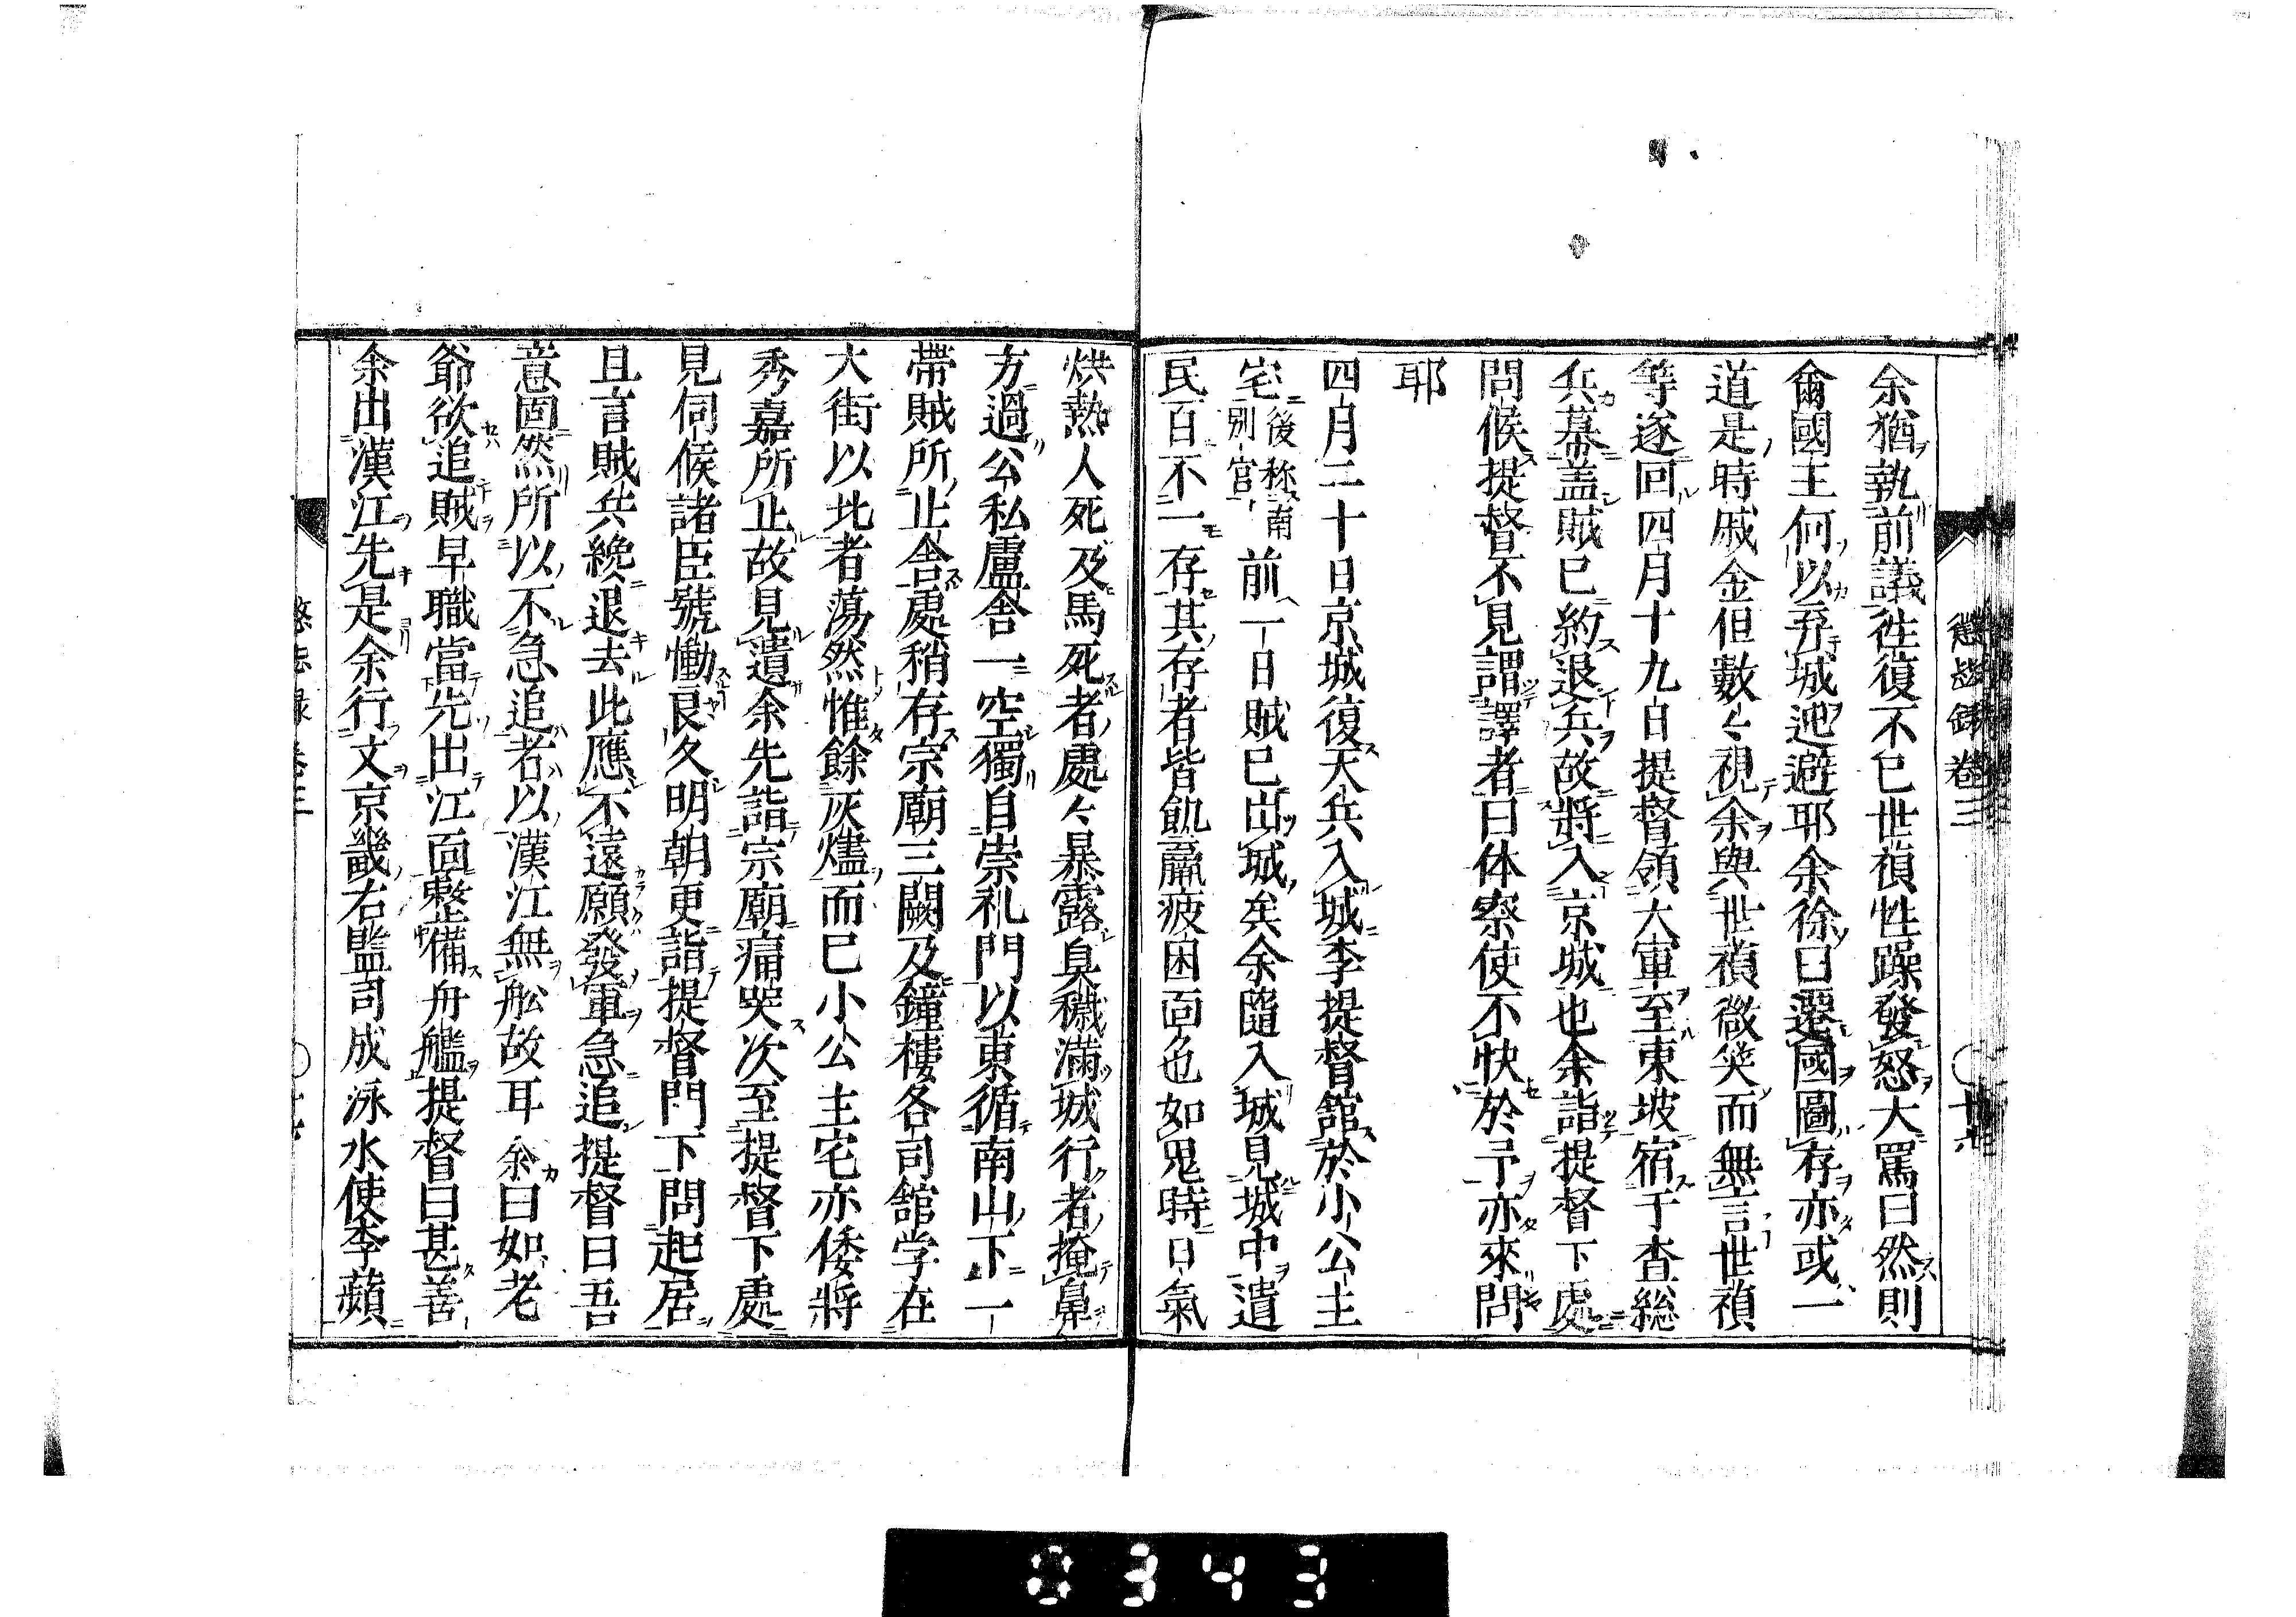 懲毖錄卷三
余猶執前議往復不已世禎性躁發怒大罵曰然則
爾國王何以弃城逃避耶余徐曰遷國圖存亦或一
道是時戚金但數々視余與世禎微笑而無言世禎
等遂回四月十九日提督領大軍至東坡宿于査総
兵幕盖賊已約退兵故將入京城也余詣提督下處
問候提督不見謂譯者曰体察使不快於予亦來問
耶
四月二十日京城復天兵入城李提督舘於小公主
宅後称南別宮前一日賊已出城矣余隨入城見城中遺
民百不一存其存者皆飢羸疲困面色如鬼時日氣
烘熱人死及馬死者處々暴露臭穢滿城行者掩鼻
方過公私廬舍一空獨自崇礼門以東循南山下一
帶賊所止舍處稍存宗廟三闕及鐘樓各司舘学在
大街以北者蕩然惟餘灰燼而已小公主宅亦倭將
秀嘉所止故見遺余先詣宗廟痛哭次至提督下處
見伺候諸臣號慟良久明朝更詣提督門下問起居
且言賊兵纔退去此應不遠願發軍急追提督曰吾
意固然所以不急追者以漢江無舩故耳余曰如老
爺欲追賊早職當先出江面整備舟艦提督曰甚善
余出漢江先是余行文京畿右監司成泳水使李蘋
卷三
0343